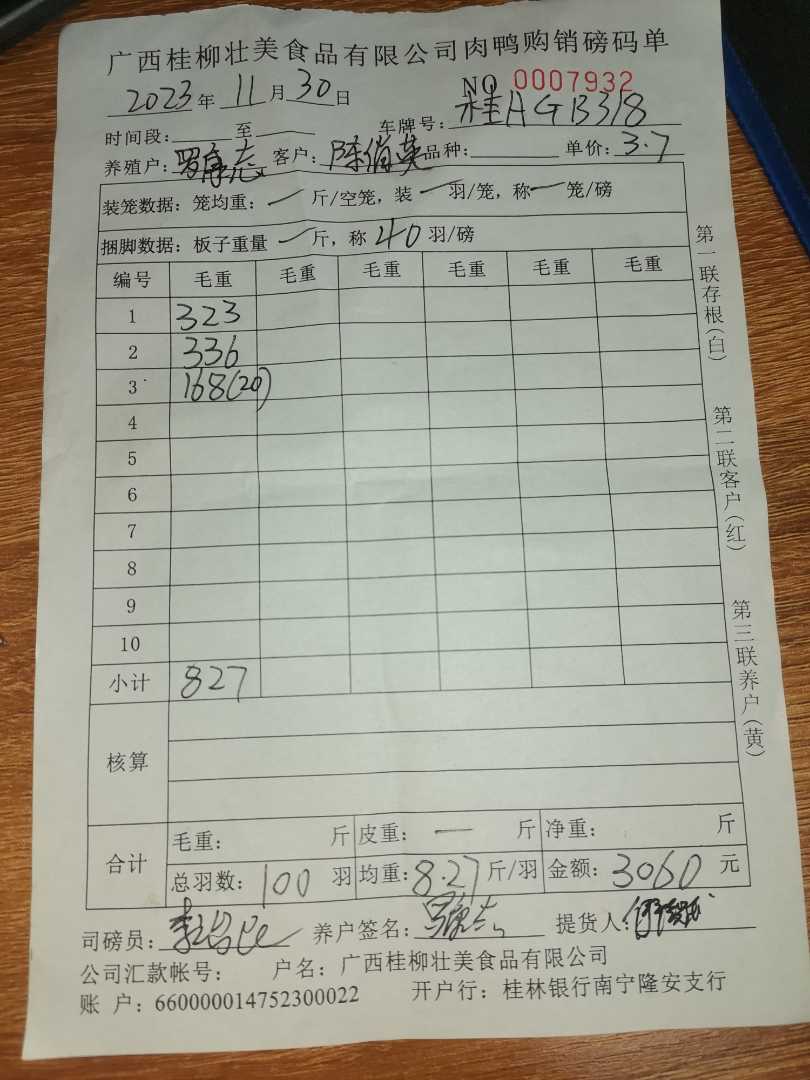 广西桂柳壮美食品有限公司肉鸭购销磅码单
2023年11月30日 NO 0007932
时间段: 至 车牌号: 桂AGB318
养殖户: 罗 志 客户: 陈 英 品种: 单价: 3.7
装笼数据: 笼均重: 一 斤/空笼, 装 一 羽/笼, 称 一 笼/磅
捆脚数据: 板子重量 一 斤, 称 40 羽/磅
编号 毛重 毛重 毛重 毛重 毛重 毛重
1 323
2 336
3 168(20)
4
5
6
7
8
9
10
小计 827
核算
合计 毛重: 斤 皮重: 一 斤 净重: 斤
总羽数: 100 羽 均重: 8.27 斤/羽 金额: 3060 元
司磅员: 养户签名: 罗 志 提货人:
公司汇款帐号: 户名: 广西桂柳壮美食品有限公司
账 户: 660000014752300022 开户行: 桂林银行南宁隆安支行
第一联存根(白)
第二联客户(红)
第三联养户(黄)